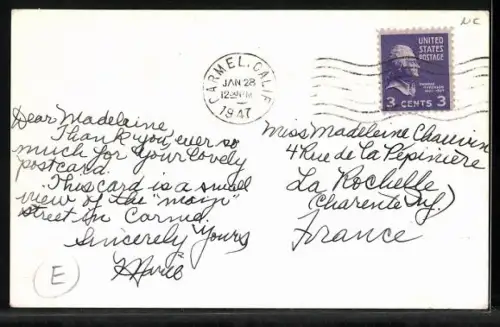 NC
UNITED STATES POSTAGE
3 CENTS 3
CARMEL, CALIF.
JAN 28
1947
Dear Madelaine
Thank you ever so
much for your lovely
postcard.
This card is a small
view of the "main"
street in Carmel.
Sincerely Yours
Marie
Miss Madeleine Chauvin
4 Rue de La Pépinière
La Rochelle
(Charente Inf.)
France
E